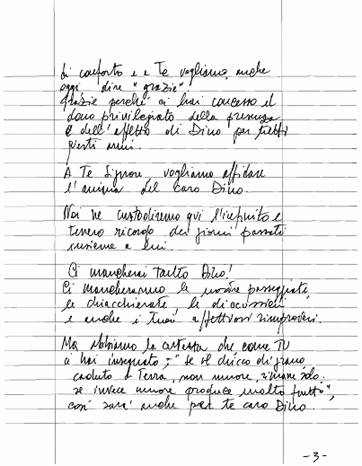 di conforto e a Te vogliamo, anche
oggi dire "grazie"
Grazie perché ci hai concesso il
dono privilegiato della presenza
e dell'affetto di Dino per tutti
questi anni.
A Te Signore vogliamo affidare
l'anima del caro Dino.
Noi ne custodiremo qui l'infinito e
tenero ricordo dei giorni passati
insieme a lui.
Ci mancherai tanto Dino!
Ci mancheranno le nostre passeggiate,
le chiacchierate, le discussioni
e anche i tuoi affettuosi rimproveri.
Ma abbiamo la certezza che come TU
ci hai insegnato, "se il chicco di grano,
caduto a Terra, non muore, rimane solo.
se invece muore produce molto frutto",
così sarà anche per te caro Dino.
-3-